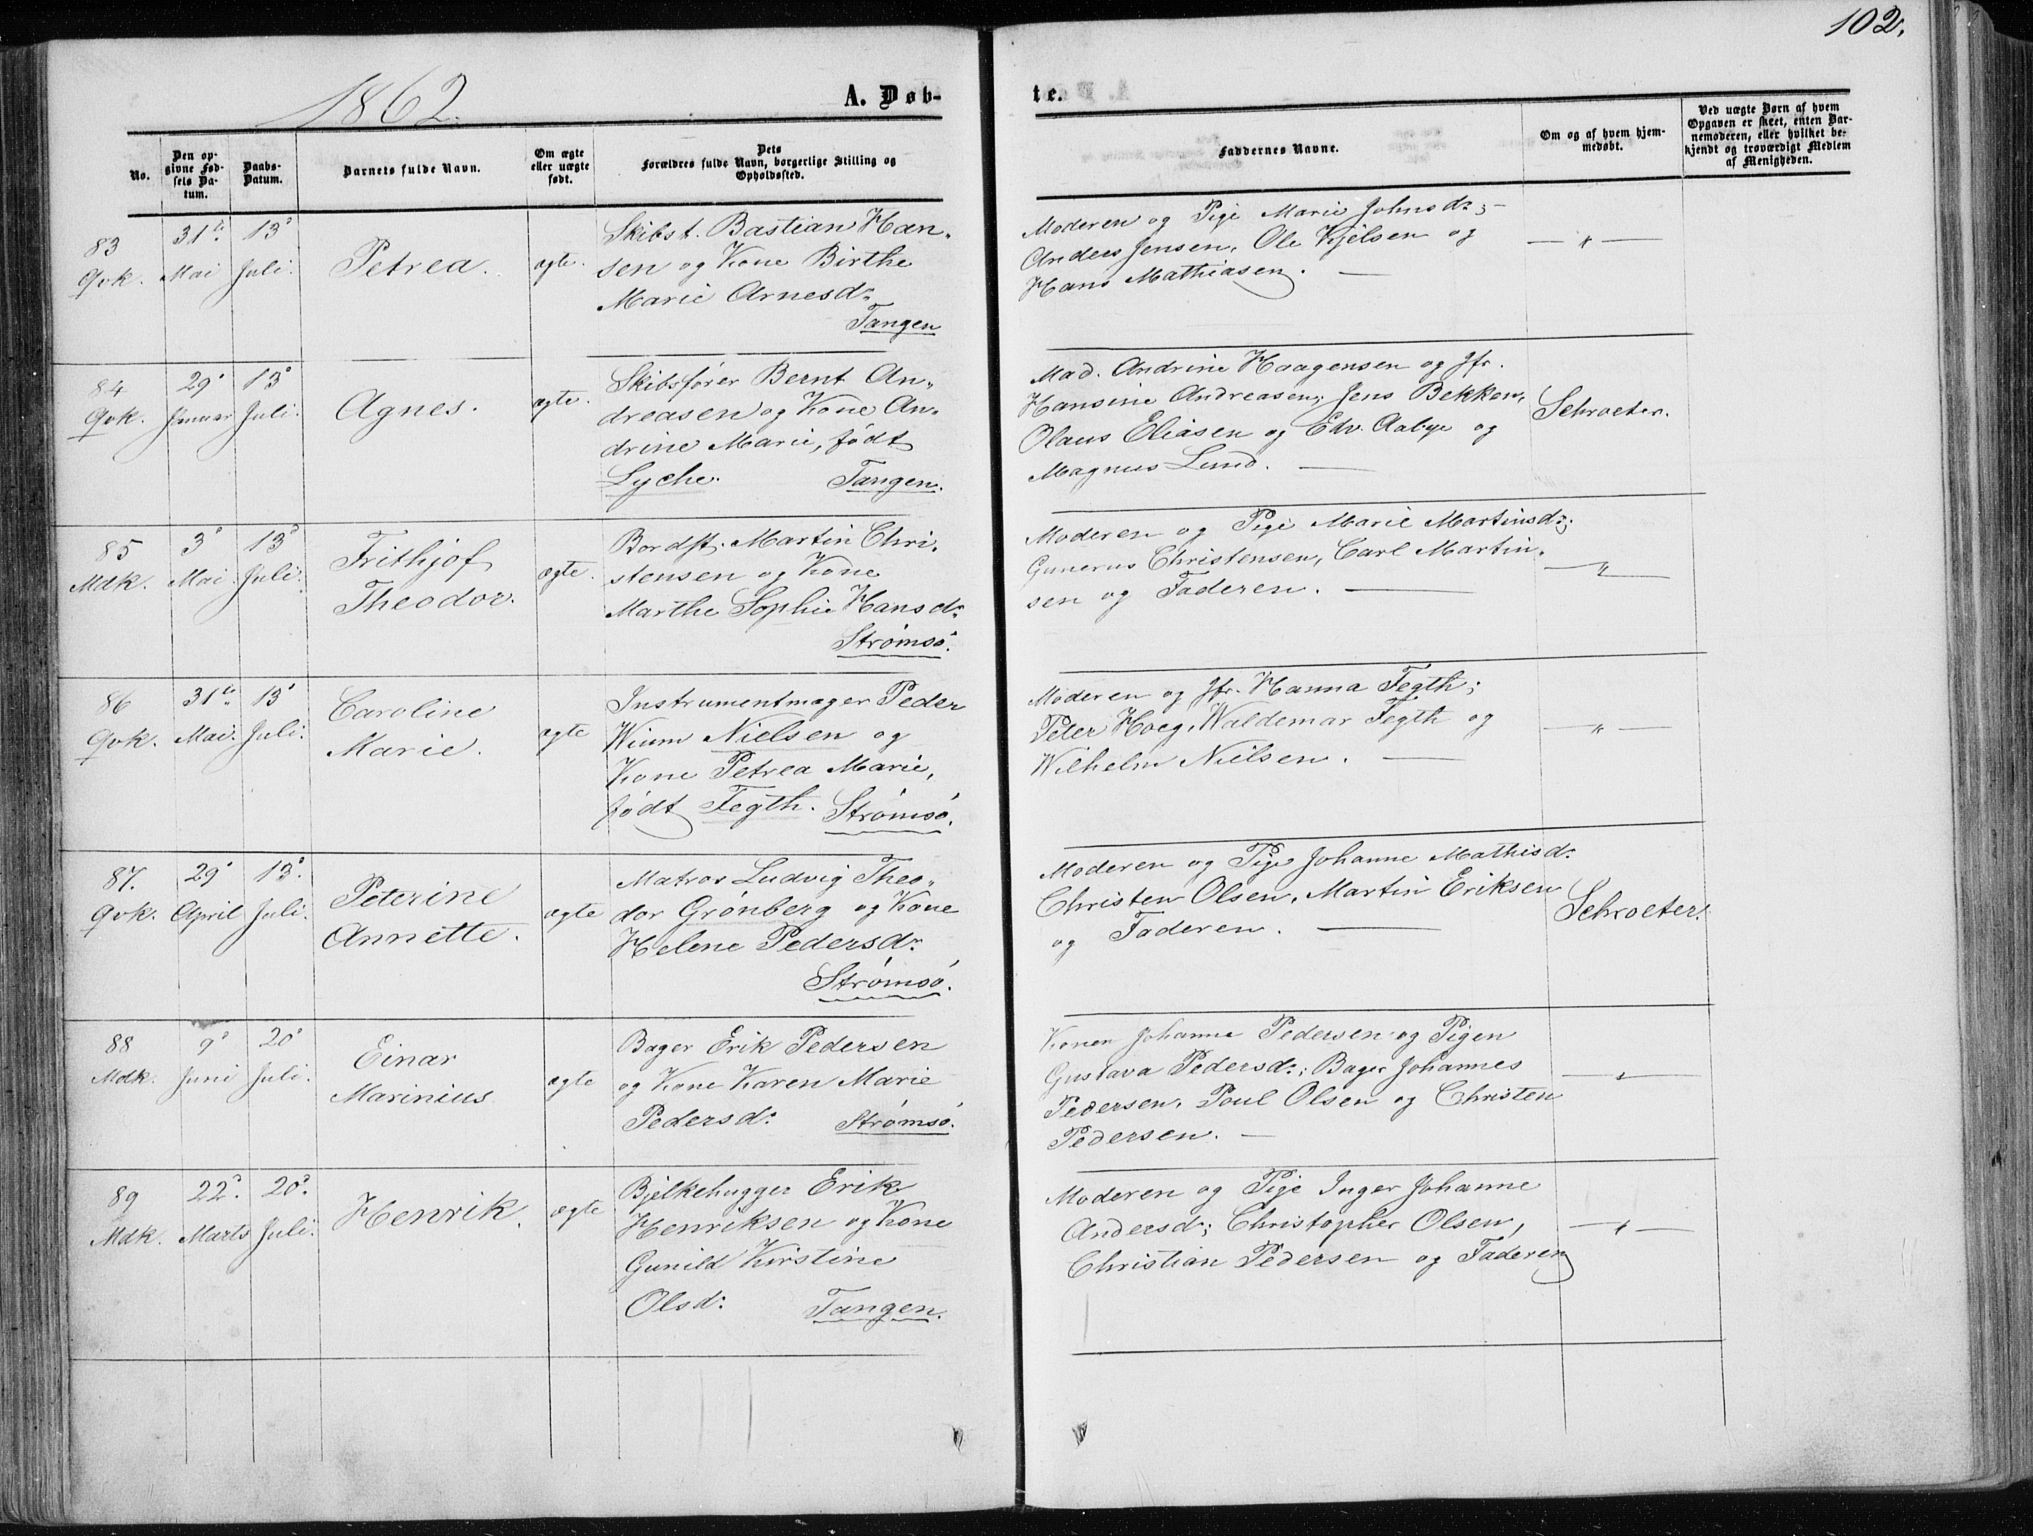 102.
1862.
A. Døb-
te.
No.
Den op-
givne Fød-
sels Da-
tum.
Daabs-
Datum.
Barnets fulde Navn.
Om ægte
eller uægte
født.
Dets
Forældres fulde Navn, borgerlige Stilling og
Opholdssted.
Faddernes Navne.
Om og af hvem hjem-
medøbt.
Ved uægte Børn af hvem
Opgaven er skeet, enten Bar-
nemoderen, eller hvilket be-
kjendt og troværdigt Medlem
af Menigheden.
83
Qvk.
31te
Mai
13d
Juli.
Petrea.
ægte.
Skibst. Bastian Han-
sen og Kone Birthe
Marie Arnesdr.
Tangen
Moderen og Pige Marie Johnsdr;
Anders Jensen, Ole Kjelsen og
Hans Mathiasen. —
— " —
84
Qvk.
29d
Januar
13d
Juli.
Agnes.
ægte.
Skibsfører Bernt An-
dreasen og Kone An-
drine Marie, født
Lyche. Tangen.
Mad. Andrine Haagensen og Jfr.
Hansine Andreasen; Jens Bekken,
Olaus Eliasen og Edv. Aabye og
Magnus Lund. —
Schroeter.
85
Mdk.
3d
Mai.
13d
Juli.
Frithjof
Theodor.
ægte.
Bordst. Martin Chri-
stensen og Kone
Marthe Sophie Hansdr.
Strømsø.
Moderen og Pige Marie Martinsdr;
Gunerus Christensen, Carl Martin-
sen og Faderen. —
— " —
86
Qvk.
31te
Mai.
13d
Juli.
Caroline
Marie.
ægte
Instrumentmager Peder
Wium Nielsen og
Kone Petrea Marie,
født Fegth. Strømsø.
Moderen og Jfr. Hanna Fegth;
Peter Hoeg, Waldemar Fegth og
Wilhelm Nielsen. —
— " —
87.
Qvk.
29d
April
13d.
Juli.
Peterine
Annette.
ægte
Matros Ludvig Theo-
dor Grønberg og Kone
Helene Pedersdr.
Strømsø.
Moderen og Pige Johanne Mathisdr.
Christen Olsen, Martin Eriksen
og Faderen. —
Schroeter.
88
Mdk.
9d
Juni
20d
Juli.
Einar
Marinius
ægte
Bager Erik Pedersen
og Kone Karen Marie
Pedersdr. Strømsø.
Konen Johanne Pedersen og Pigen
Gustava Pedersdr.; Bager Johannes
Pedersen, Poul Olsen og Christen
Pedersen. —
— " —
89
Mdk.
22d.
Marts
20d.
Juli.
Henrik.
ægte
Bjelkehugger Erik
Henriksen og Kone
Gunild Kirstine
Olsdr. Tangen.
Moderen og Pige Inger Johanne
Andersdr; Christopher Olsen,
Christian Pedersen og Faderen
— " —